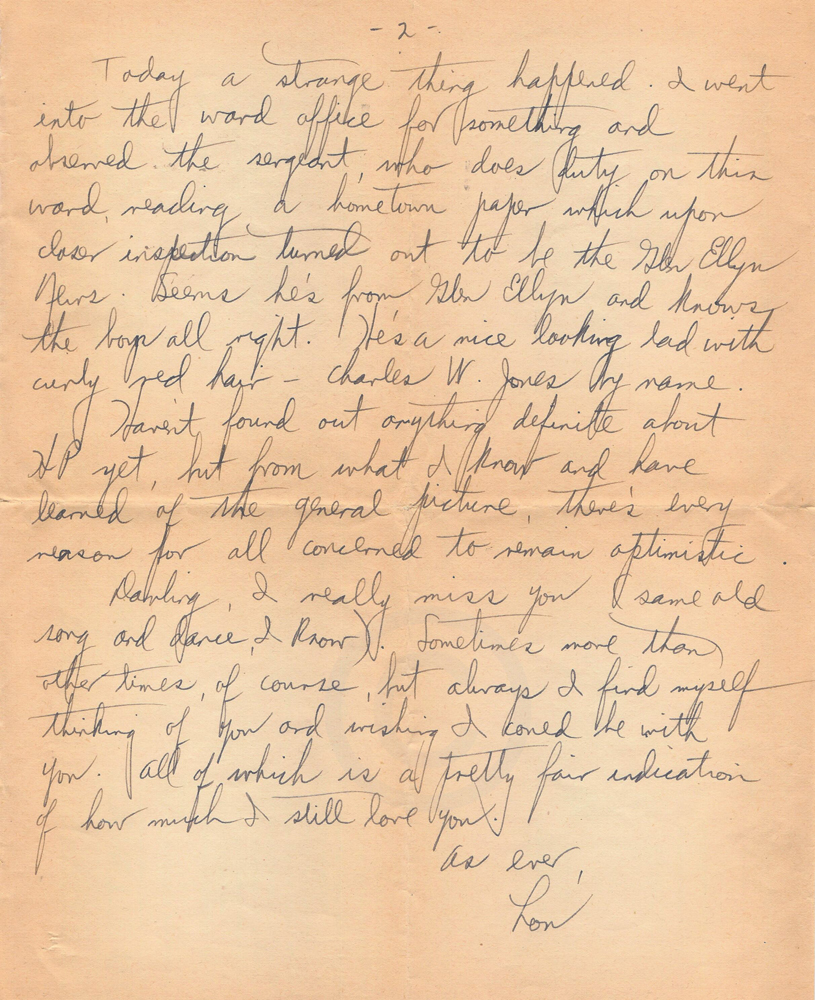 - 2 -
Today a strange thing happened. I went
into the ward office for something and
observed the sergeant, who does duty on this
ward, reading a hometown paper which upon
closer inspection turned out to be the Glen Ellyn
News. Seems he's from Glen Ellyn and knows
the boys all right. He's a nice looking lad with
curly red hair - Charles W. Jones by name.
Haven't found out anything definite about
HP yet, but from what I know and have
learned of the general picture, there's every
reason for all concerned to remain optimistic.
Darling, I really miss you (same old
song and dance, I know). Sometimes more than
other times, of course, but always I find myself
thinking of you and wishing I could be with
you. All of which is a pretty fair indication
of how much I still love you.
As ever,
Lon